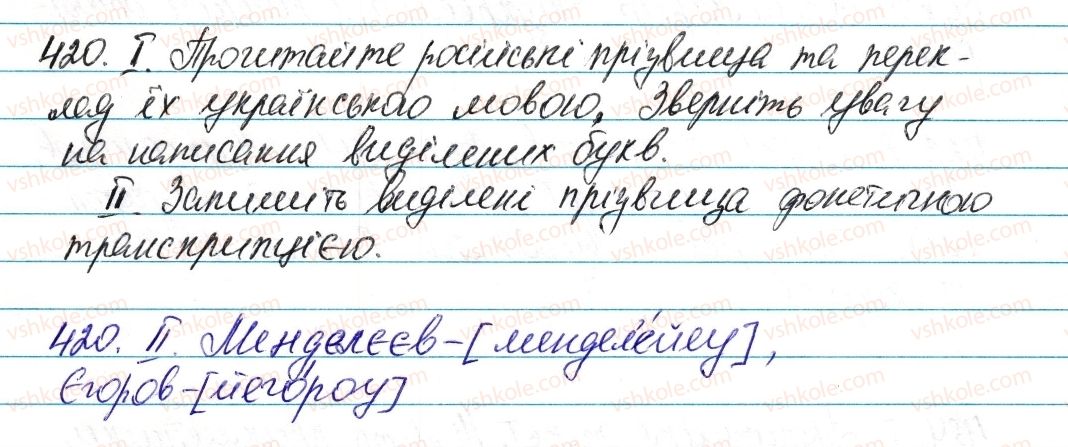 420. І. Прочитайте російські прізвища та перек-
лад їх українською мовою. Зверніть увагу
на написання виділених букв.
ІІ. Запишіть виділені прізвища фонетичною
транскрипцією.
420. ІІ. Менделєєв-[мендел'е́йеу],
Єгоров-[йего́роу]